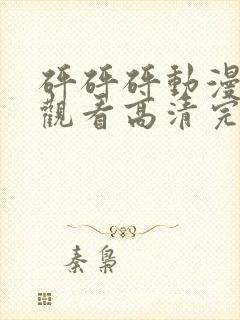 砰砰砰動漫
觀看高清完
秦梟